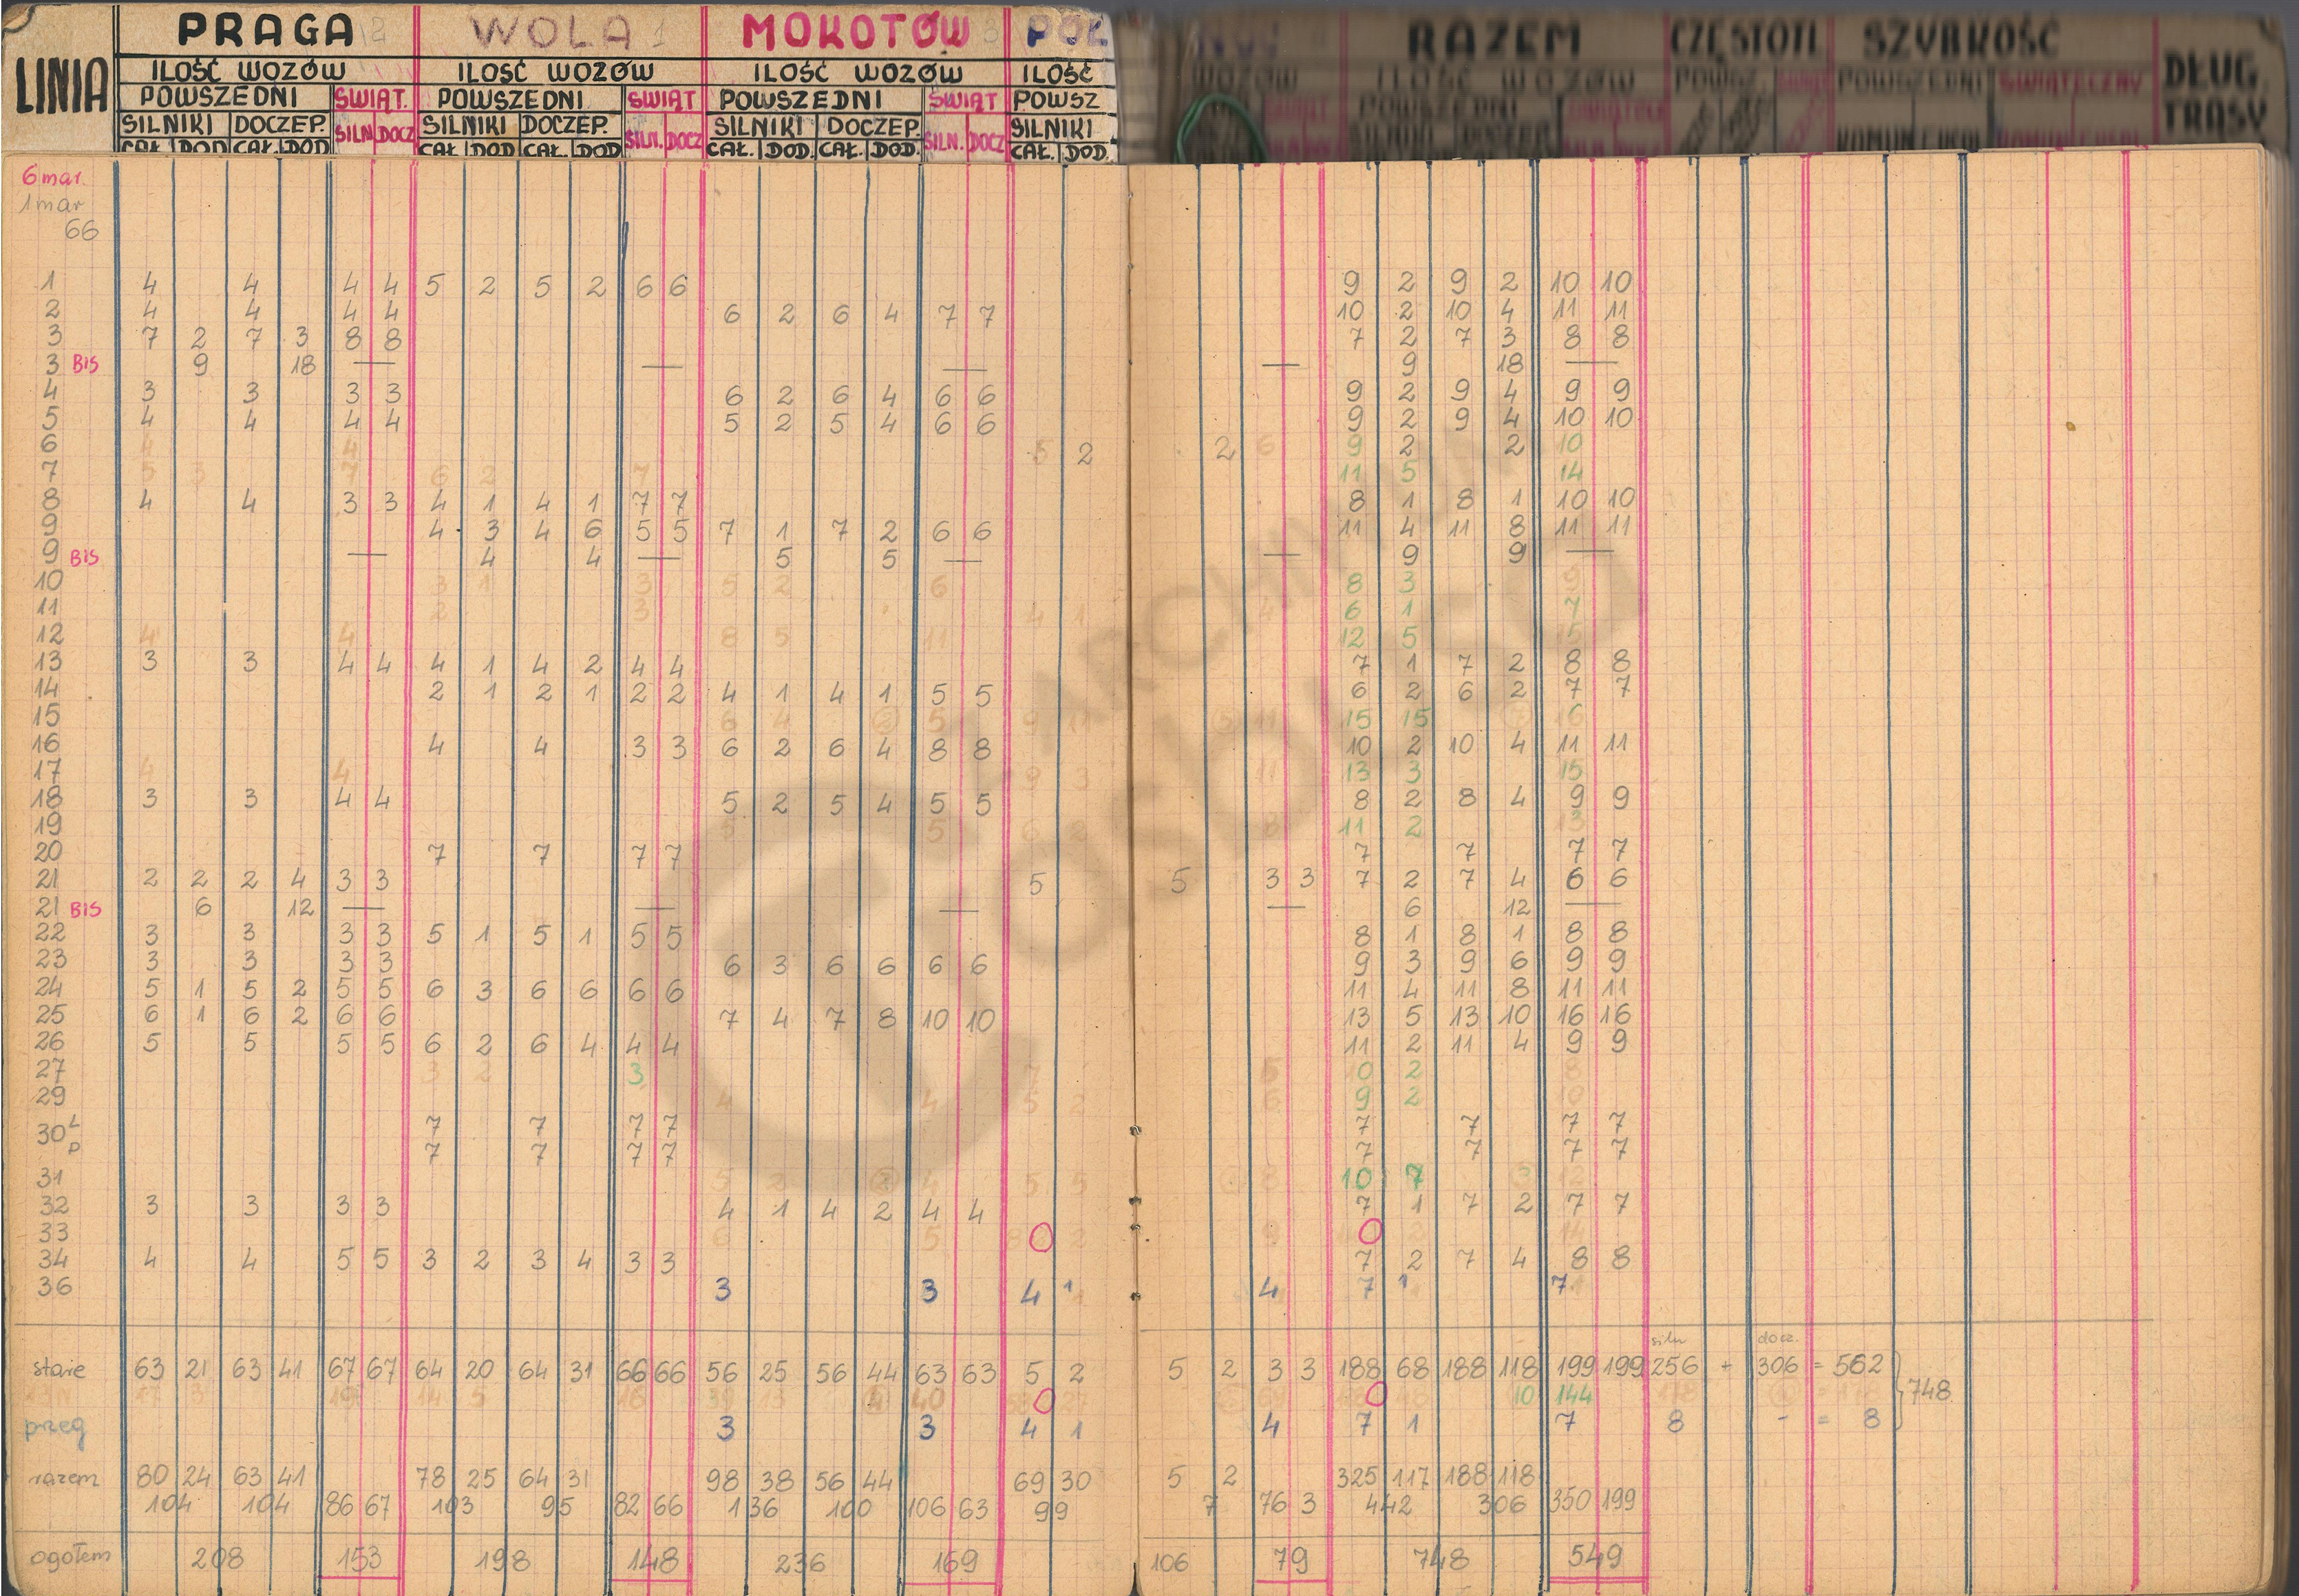 LINIA PRAGA 2 WOLA 1 MOKOTÓW 3 RAZEM CZĘSTOTL SZYBKOŚĆ DŁUG. TRASY
ILOŚĆ WOZÓW ILOŚĆ WOZÓW ILOŚĆ WOZÓW ILOŚĆ WOZÓW ILOŚĆ WOZÓW
POWSZEDNI ŚWIĄT. POWSZEDNI ŚWIĄT POWSZEDNI ŚWIĄT POWSZ POWSZEDNI POWSZ POWSZEDNI ŚWIĄTECZNY
SILNIKI DOCZEP. SILN DOCZ SILNIKI DOCZEP. SILN. DOCZ SILNIKI DOCZEP. SILN. DOCZ SILNIKI
CAŁ. DOD CAŁ. DOD CAŁ. DOD CAŁ. DOD CAŁ. DOD. CAŁ. DOD. CAŁ. DOD.
6 mar.
1 mar
66
1 4 4 4 4 5 2 5 2 6 6 9 2 9 2 10 10
2 4 4 4 4 6 2 6 4 7 7 10 2 10 4 11 11
3 7 2 7 3 8 8 7 2 7 3 8 8
3 BIS 9 18 — — — — 9 18 —
4 3 3 3 3 6 2 6 4 6 6 9 2 9 4 9 9
5 4 4 4 4 5 2 5 4 6 6 9 2 9 4 10 10
6 4 4 5 2 2 6 9 2 2 10
7 5 3 7 6 2 7 11 5 14
8 4 4 3 3 4 1 4 1 7 7 8 1 8 1 10 10
9 4 3 4 6 5 5 7 1 7 2 6 6 11 4 11 8 11 11
9 BIS — 4 4 — 5 5 — — 9 9 —
10 3 1 3 5 2 6 8 3 9
11 2 3 4 1 4 6 1 7
12 4 4 8 5 11 12 5 15
13 3 3 4 4 4 1 4 2 4 4 7 1 7 2 8 8
14 2 1 2 1 2 2 4 1 4 1 5 5 6 2 6 2 7 7
15 6 4 2 5 9 11 5 11 15 15 7 16
16 4 4 3 3 6 2 6 4 8 8 10 2 10 4 11 11
17 4 4 9 3 11 13 3 15
18 3 3 4 4 5 2 5 4 5 5 8 2 8 4 9 9
19 5 5 6 2 8 11 2 13
20 7 7 7 7 7 7 7 7
21 2 2 2 4 3 3 5 5 3 3 7 2 7 4 6 6
21 BIS 6 12 — — — — 6 12 —
22 3 3 3 3 5 1 5 1 5 5 8 1 8 1 8 8
23 3 3 3 3 6 3 6 6 6 6 9 3 9 6 9 9
24 5 1 5 2 5 5 6 3 6 6 6 6 11 4 11 8 11 11
25 6 1 6 2 6 6 7 4 7 8 10 10 13 5 13 10 16 16
26 5 5 5 5 6 2 6 4 4 4 11 2 11 4 9 9
27 3 2 3 7 5 10 2 8
29 4 4 5 2 6 9 2 10
30 L 7 7 7 7 7 7 7 7
P 7 7 7 7 7 7 7 7
31 5 2 2 4 5 5 8 10 7 3 12
32 3 3 3 3 4 1 4 2 4 4 7 1 7 2 7 7
33 6 5 8 0 2 9 0 2 14
34 4 4 5 5 3 2 3 4 3 3 7 2 7 4 8 8
36 3 3 4 1 4 7 1 7
siln docz.
stare 63 21 63 41 67 67 64 20 64 31 66 66 56 25 56 44 63 63 5 2 5 2 3 3 188 68 188 118 199 199 256 + 306 = 562 } 748
17 3 19 14 5 16 39 13 4 40 0 27 0 10 144
przeg 3 3 4 1 4 7 1 7 8 - = 8
razem 80 24 63 41 78 25 64 31 98 38 56 44 69 30 5 2 325 117 188 118
104 104 86 67 103 95 82 66 136 100 106 63 99 7 76 3 442 306 350 199
ogółem 208 153 198 148 236 169 106 79 748 549